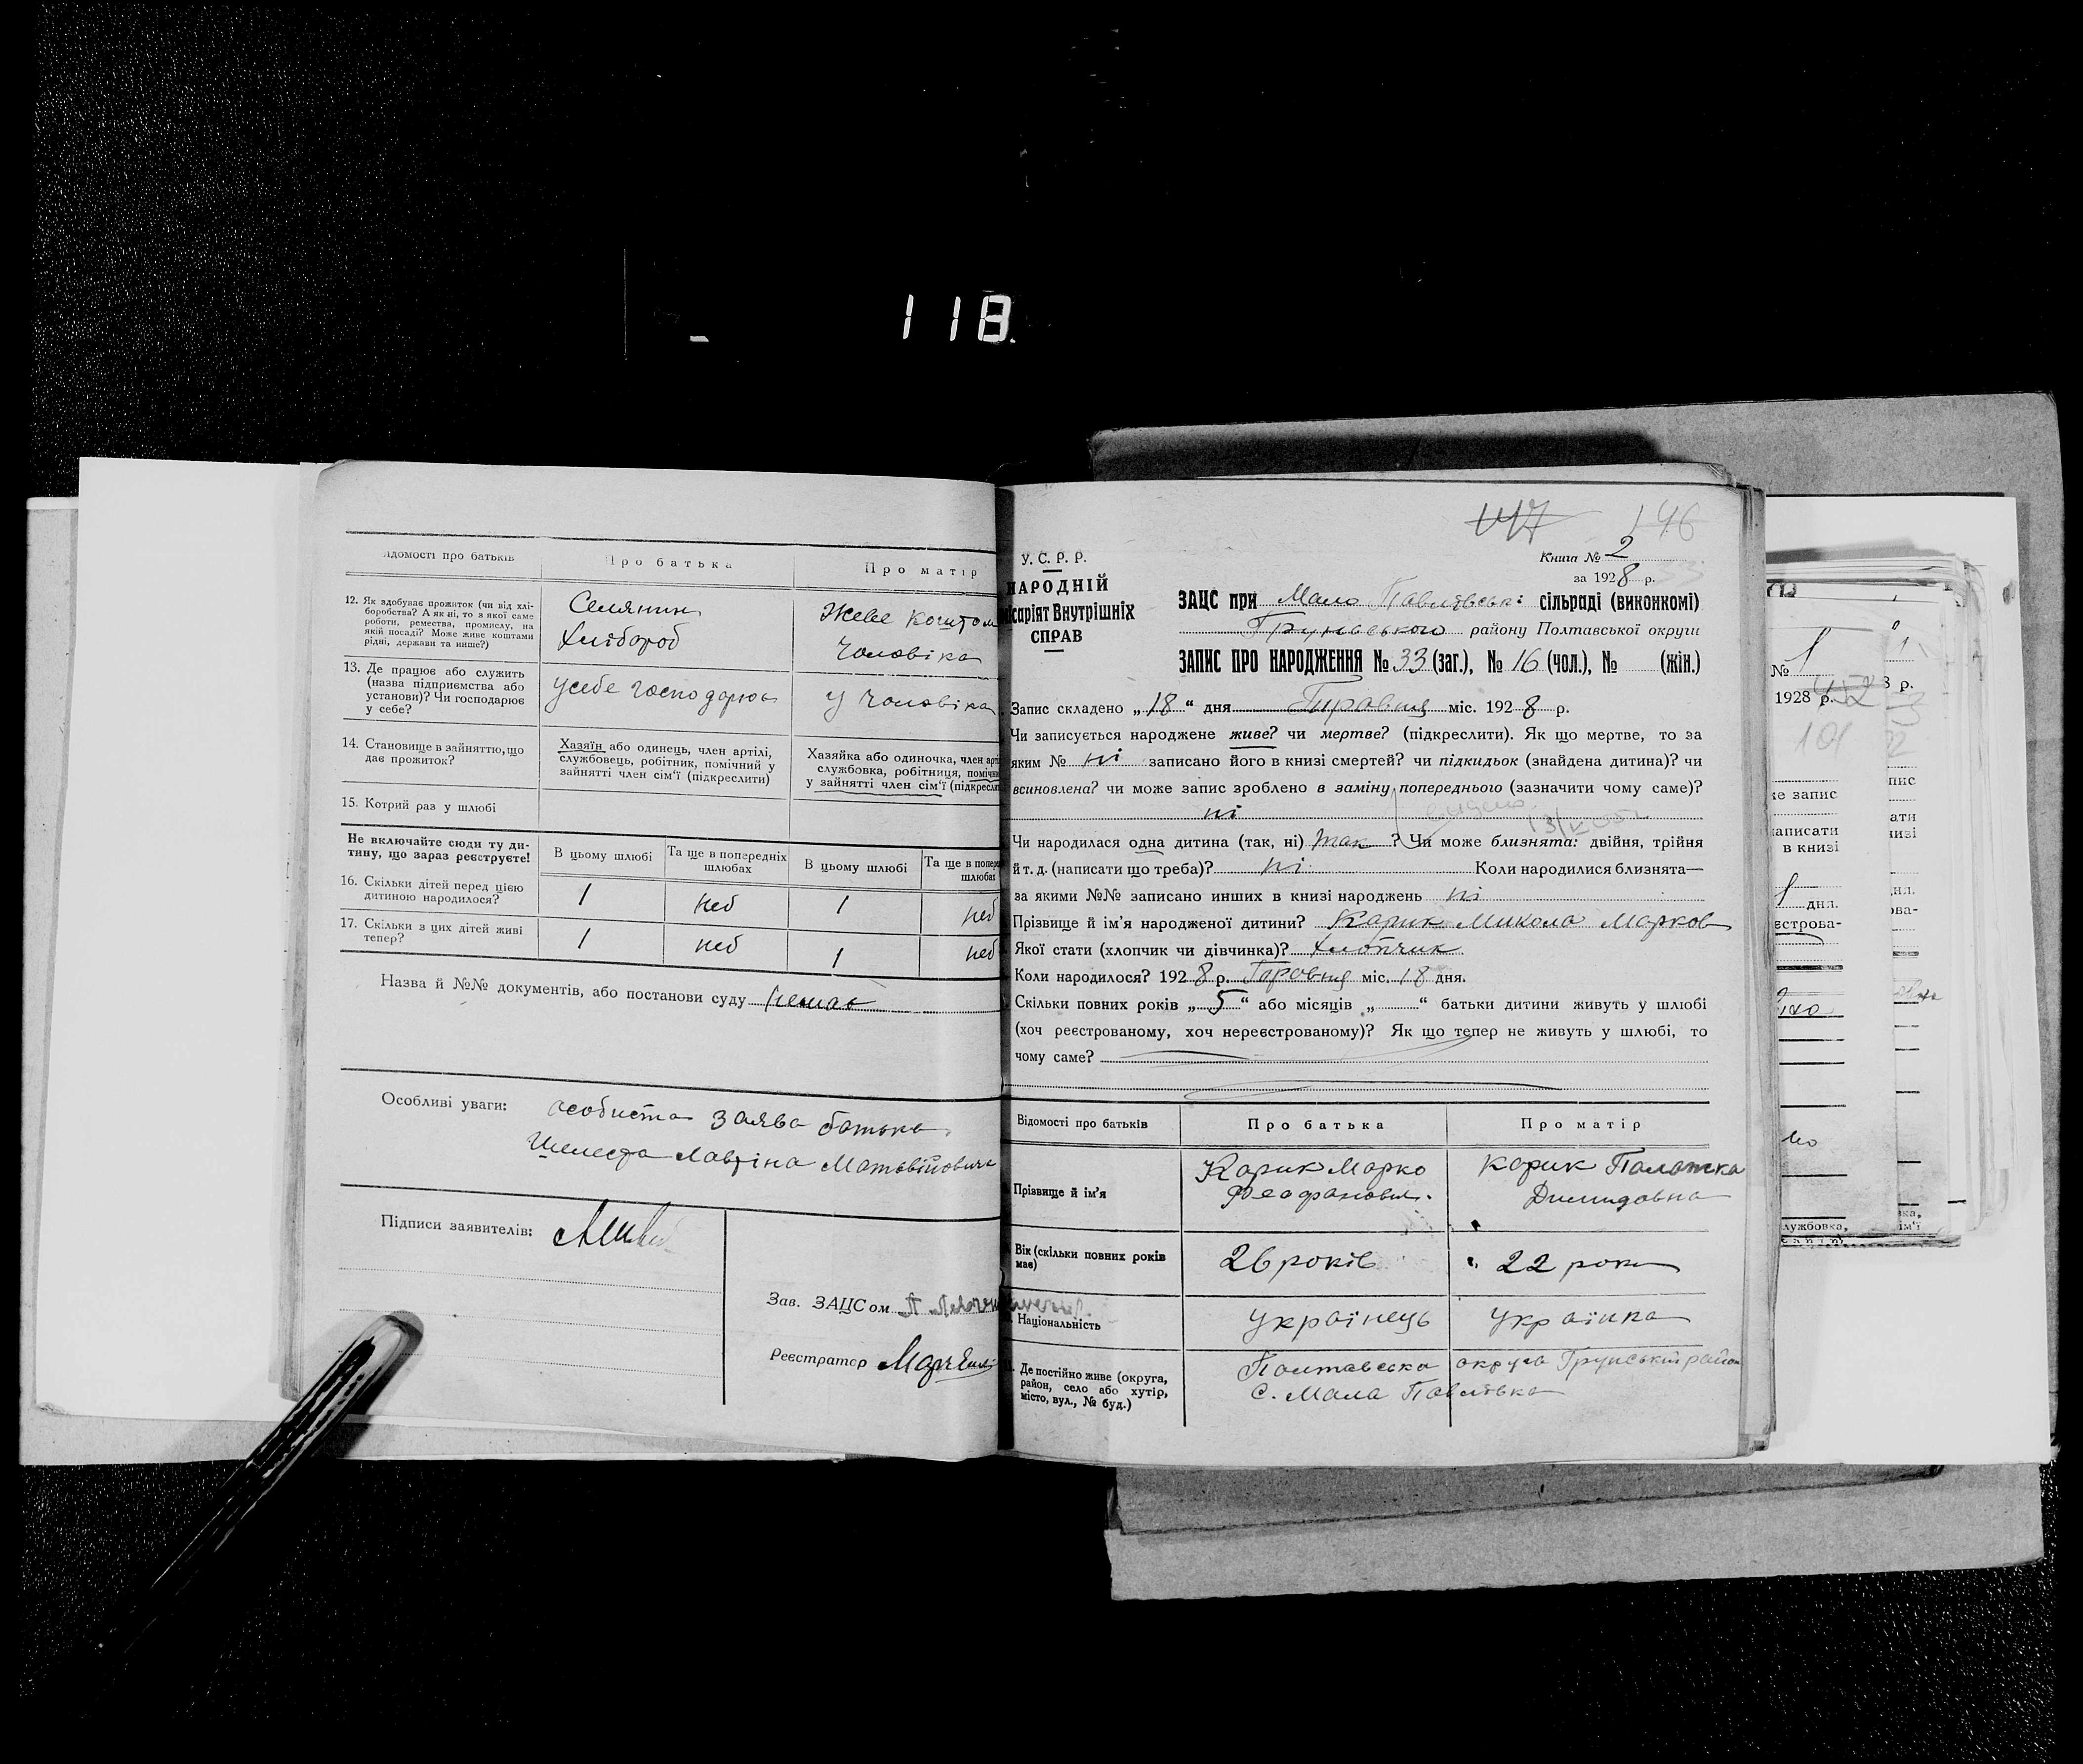 118.
Відомості про батьків
Про батька
Про матір
12. Як здобуває прожиток (чи від хлі-
боробства? А як ні, то з якої саме
роботи, ремества, промислу, на
якій посаді? Може живе коштами
рідні, держави та инше?)
Селянин
Хлібороб
Живе коштом
Чоловіка
13. Де працює або служить
(назва підприємства або
установи)? Чи господарює
у себе?
у себе господарює
у Чоловіка
14. Становище в зайняттю, що
дає прожиток?
Хазяїн або одинець, член артілі,
службовець, робітник, помічний у
зайнятті член сім'ї (підкреслити)
Хазяйка або одиночка, член арті
службовка, робітниця, помічн
у зайнятті член сім'ї (підкресли
15. Котрий раз у шлюбі
Не включайте сюди ту ди-
тину, що зараз реєструєте!
В цьому шлюбі
Та ще в попередніх
шлюбах
В цьому шлюбі
Та ще в попере
шлюбах
16. Скільки дітей перед цією
дитиною народилося?
1
1
17. Скільки з цих дітей живі
тепер?
1
1
Назва й №№ документів, або постанови суду немає
Особливі уваги: особиста заява батька
Шелеста Лавріна Матвійовича
Підписи заявителів:
Зав. ЗАЦСом
Реєстратор
147 146
У.С.Р.Р.
НАРОДНІЙ
місаріят Внутрішніх
СПРАВ
Книга № 2
за 1928 р.
ЗАЦС при Мало Павлівські сільраді (виконкомі)
Груньського району Полтавської округи
ЗАПИС ПРО НАРОДЖЕННЯ № 33 (заг.), № 16 (чол.), № (жін.)
Запис складено „18“ дня Травня міс. 1928 р.
Чи записується народжене живе? чи мертве? (підкреслити). Як що мертве, то за
яким № ні записано його в книзі смертей? чи підкидьок (знайдена дитина)? чи
всиновлена? чи може запис зроблено в заміну попереднього (зазначити чому саме)?
ні
Чи народилася одна дитина (так, ні) так ? Чи може близнята: двійня, трійня
й т. д. (написати що треба)? ні Коли народилися близнята—
за якими №№ записано инших в книзі народжень ні
Прізвище й ім'я народженої дитини? Карик Микола Марков
Якої стати (хлопчик чи дівчинка)? хлопчик
Коли народилося? 1928 р. Травня міс. 18 дня.
Скільки повних років „5“ або місяців „ “ батьки дитини живуть у шлюбі
(хоч реєстрованому, хоч нереєстрованому)? Як що тепер не живуть у шлюбі, то
чому саме?
Відомості про батьків
Про батька
Про матір
Прізвище й ім'я
Карик Марко
Феофанович.
Карик Палажка
Демидовна
Вік (скільки повних років
має)
26 років
22 роки
Національність
Українець
Українка
Де постійно живе (округа,
район, село або хутір,
місто, вул., № буд.)
Полтавська округа Грунський район
С. Мала Павлівка